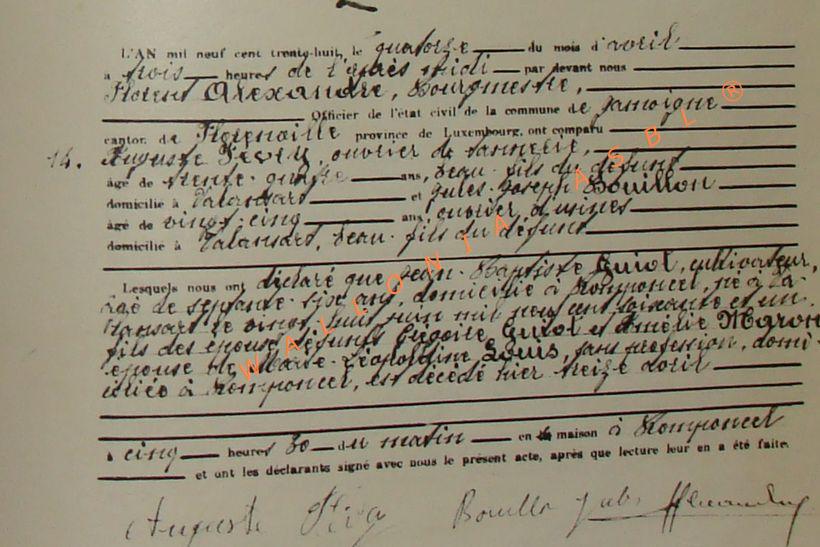 L'AN mil neuf cent trente-huit, le quatorze du mois d'avril
à trois heures de l'après midi par devant nous
Florent Alexandre, Bourgmestre,
Officier de l'état civil de la commune de Jamoigne
canton de Florenville province de Luxembourg, ont comparu
14. Auguste , ouvrier de tannerie,
âgé de trente-quatre ans, beau-fils du défunt
domicilié à Valansart et Jules-Joseph Bouillon
âgé de vingt-cinq ans, ouvrier d'usines
domicilié à Valansart, beau-fils du défunt
Lesquels nous ont déclaré que Jean-Baptiste Guiot, cultivateur,
âgé de septante-six ans, domicilié à Romponcel, né à Va-
lansart le vingt-huit juin mil neuf cent soixante et un
fils des époux défunts Grégoire Guiot et Amélie Maron
époux de Marie-Léopoldine Louis, sans profession, domi-
ciliée à Romponcel, est décédé hier treize avril
à cinq heures 30 du matin en sa maison à Romponcel
et ont les déclarants signé avec nous le présent acte, après que lecture leur en a été faite.
Auguste Bouillon Jules Alexandre
WALLONIA ASBL ®